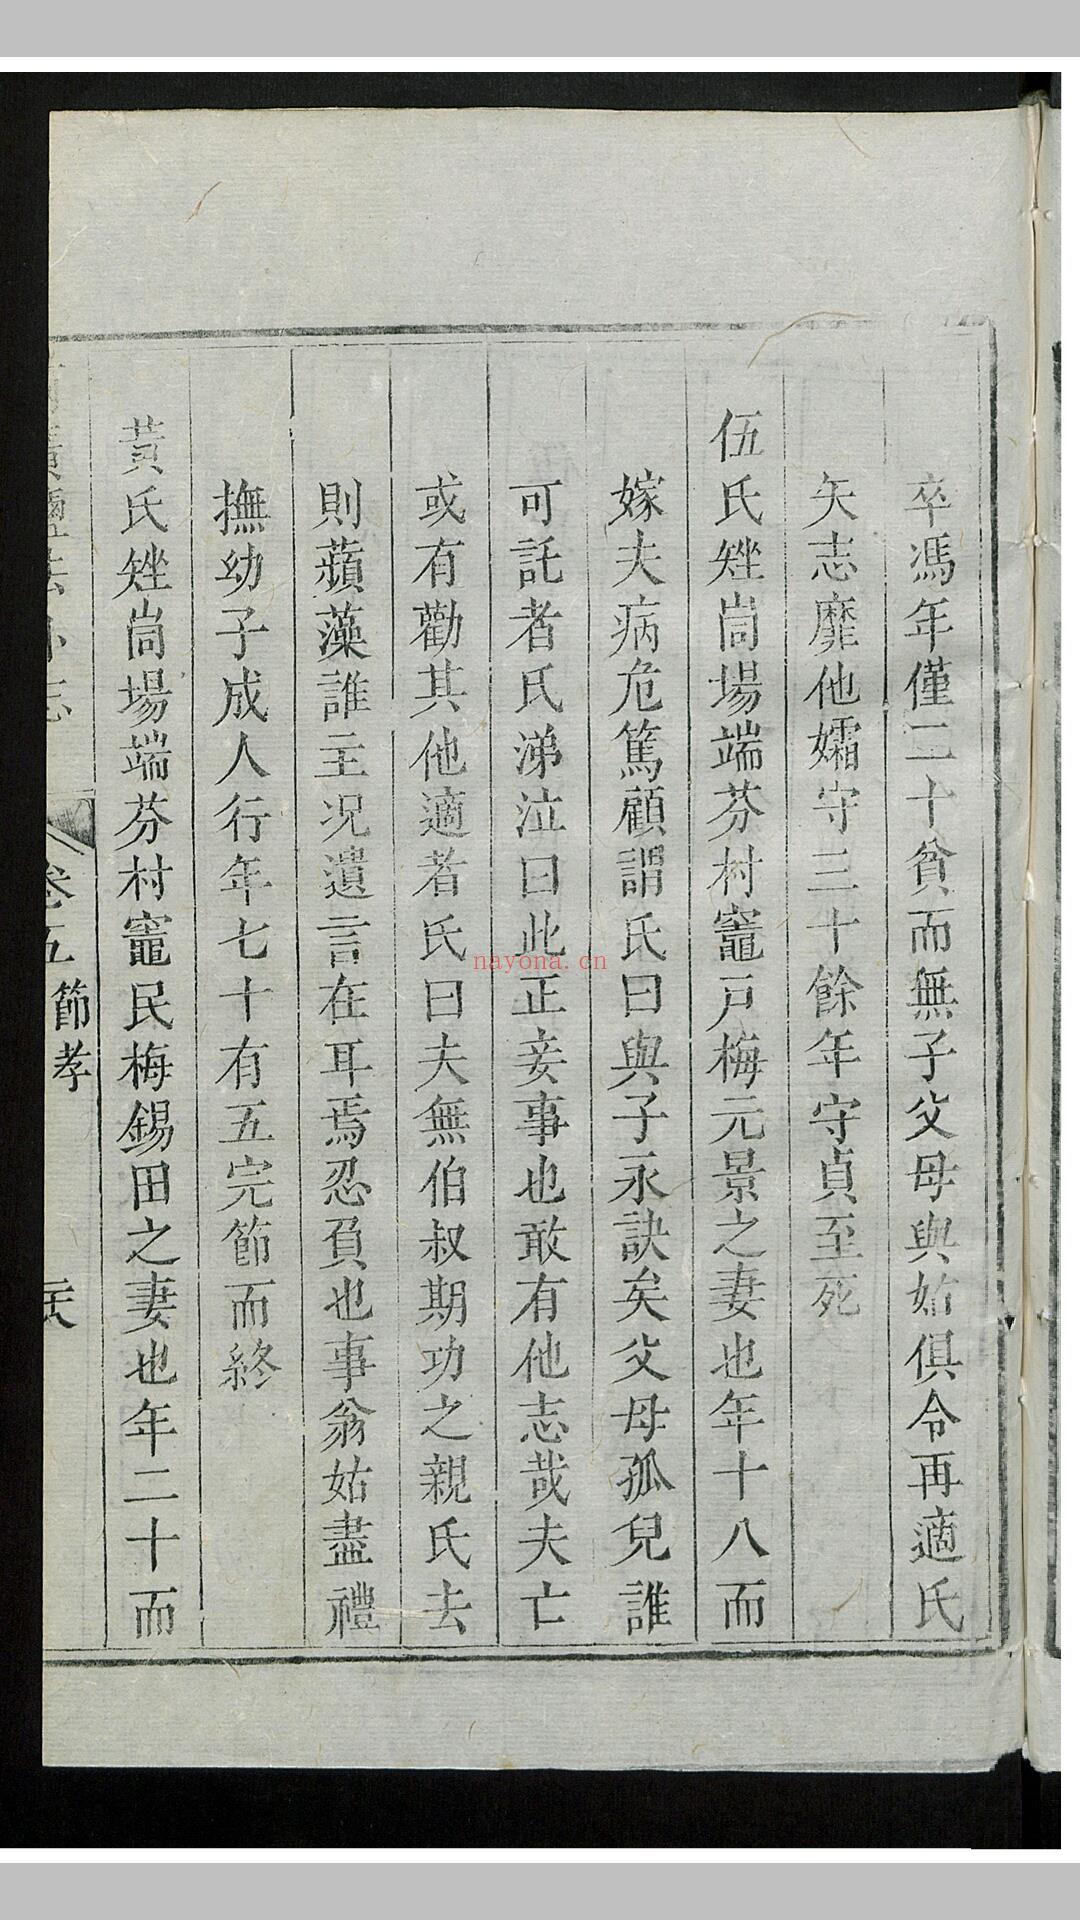 卒馮年僅二十貧而無子父母與姑俱令再適氏
矢志靡他孀守三十餘年守貞至死
伍氏矬峝場端芬村竈戶梅元景之妻也年十八而
嫁夫病危篤顧謂氏曰與子永訣矣父母孤兒誰
可託者氏涕泣曰此正妾事也敢有他志哉夫亡
或有勸其他適者氏曰夫無伯叔期功之親氏去
則蘋藻誰主况遺言在耳焉忍負也事翁姑盡禮
撫幼子成人行年七十有五完節而終
黃氏矬峝場端芬村竈民梅錫田之妻也年二十而
卷五 節孝
nayona.cn